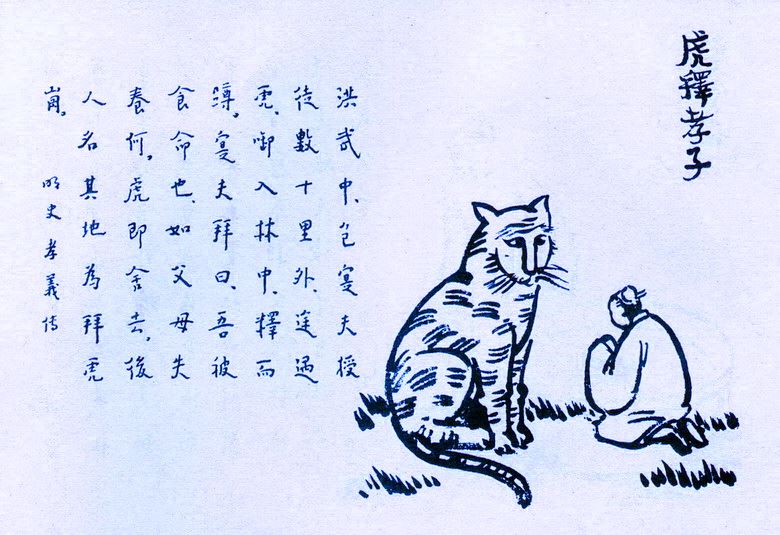 虎釋孝子
洪武中、包寔夫授
徒數十里外、途遇
虎、啣入林中、釋而
蹲。寔夫拜曰、吾被
食命也、如父母失
養何。虎即舍去。後
人名其地為拜虎
崗。 明史孝義傳